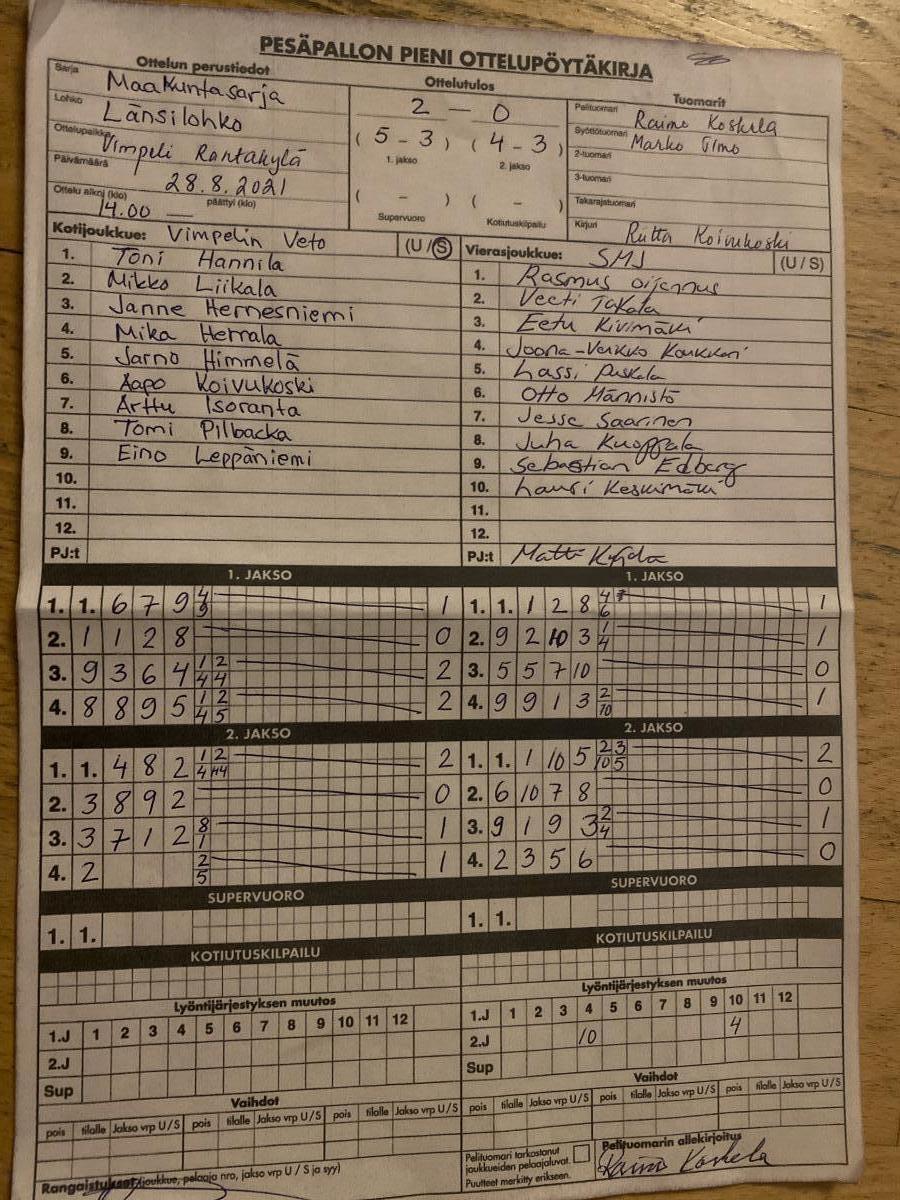 PESÄPALLON PIENI OTTELUPÖYTÄKIRJA
Ottelun perustiedot
Sarja Maakuntasarja
Lohko Länsilohko
Ottelupaikka Vimpeli Rantakylä
Päivämäärä 28.8.2021
Ottelu alkoi (klo) 14.00 päättyi (klo)
Ottelutulos
2 – 0
(5 – 3) (4 – 3)
1. jakso 2. jakso
( – ) ( – )
Supervuoro Kotiutuskilpailu
Tuomarit
Pelituomari Raimo Koskela
Syöttötuomari Marko
2-tuomari
3-tuomari
Takarajatuomari
Kirjuri Riitta Koivukoski
Kotijoukkue: Vimpelin Veto (U/S)
1. Toni Hannila
2. Mikko Liikala
3. Janne Hernesniemi
4. Mika Herrala
5. Jarno Himmelä
6. Aapo Koivukoski
7. Arttu Isoranta
8. Tomi Pilbacka
9. Eino Leppäniemi
10.
11.
12.
PJ:t
Vierasjoukkue: SMJ (U/S)
1. Rasmus
2. Veeti Takala
3. Eetu Kivimäki
4. Joona-Verkko
5. Lassi Puskala
6. Otto Männistö
7. Jesse Saarinen
8. Juha Kuoppala
9. Sebastian Edberg
10. Lauri Keskimäki
11.
12.
PJ:t Matti
1. JAKSO
1. 1. 6 7 9 4/9 1
2. 1 1 2 8 0
3. 9 3 6 4 1/4 2/4 2
4. 8 8 9 5 1/4 2/5 2
1. JAKSO
1. 1. 1 2 8 4/6 1
2. 9 2 10 3 1/4 1
3. 5 5 7 10 0
4. 9 9 1 3 2/10 1
2. JAKSO
1. 1. 4 8 2 1/4 2/4 2
2. 3 8 9 2 0
3. 3 7 1 2 8/1 1
4. 2 2/5 1
2. JAKSO
1. 1. 1 10 5 2/10 3/5 2
2. 6 10 7 8 0
3. 9 1 9 3 2/4 1
4. 2 3 5 6 0
SUPERVUORO
1. 1.
SUPERVUORO
1. 1.
KOTIUTUSKILPAILU
KOTIUTUSKILPAILU
Lyöntijärjestyksen muutos
1.J 1 2 3 4 5 6 7 8 9 10 11 12
2.J
Sup
Lyöntijärjestyksen muutos
1.J 1 2 3 4 5 6 7 8 9 10 11 12
2.J 10 4
Sup
Vaihdot
pois tilalle Jakso vrp U/S pois tilalle Jakso vrp U/S pois tilalle Jakso vrp U/S
Vaihdot
pois tilalle Jakso vrp U/S pois tilalle Jakso vrp U/S pois tilalle Jakso vrp U/S
Rangaistukset (joukkue, pelaaja nro, jakso vrp U/S ja syy)
Pelituomari tarkastanut
joukkueiden pelaajaluvat.
Puutteet merkitty erikseen.
Pelituomarin allekirjoitus
Raimo Koskela